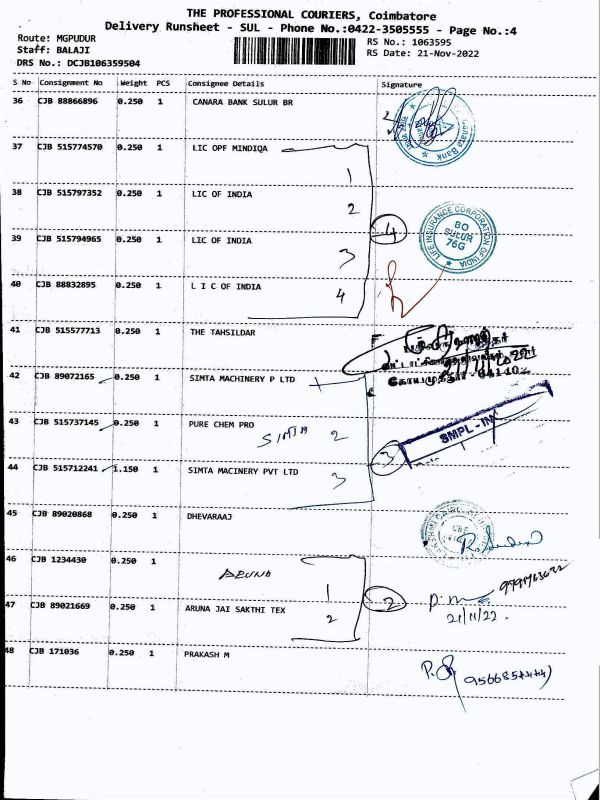 THE PROFESSIONAL COURIERS, Coimbatore
Delivery Runsheet - SUL - Phone No.:0422-3505555 - Page No.:4
Route: MGPUDUR
RS No.: 1063595
Staff: BALAJI
RS Date: 21-Nov-2022
DRS No.: DCJB106359504
S No Consignment No Weight PCS Consignee Details Signature
36 CJB 88866896 0.250 1 CANARA BANK SULUR BR
Canara Bank
37 CJB 515774570 0.250 1 LIC OPF MINDIQA
1
38 CJB 515797352 0.250 1 LIC OF INDIA
2
4
LIFE INSURANCE CORPORATION OF INDIA
BO
SULUR
76G
39 CJB 515794965 0.250 1 LIC OF INDIA
3
40 CJB 88832895 0.250 1 L I C OF INDIA
4
41 CJB 515577713 0.250 1 THE TAHSILDAR
42 CJB 89072165 0.250 1 SIMTA MACHINERY P LTD
43 CJB 515737145 0.250 1 PURE CHEM PRO
SIMTA 2
SMPL - IN
3
44 CJB 515712241 1.150 1 SIMTA MACINERY PVT LTD
3
45 CJB 89020868 0.250 1 DHEVARAAJ
46 CJB 1234430 0.250 1
ARUNA
1
2
47 CJB 89021669 0.250 1 ARUNA JAI SAKTHI TEX
2
21/11/22.
48 CJB 171036 0.250 1 PRAKASH M